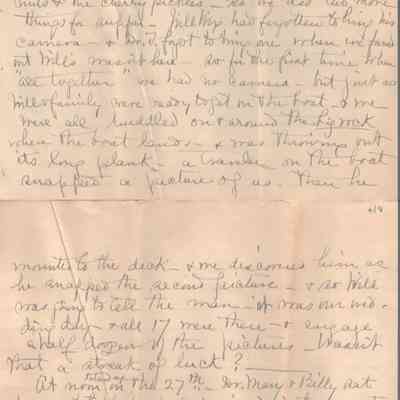 nuts & the cherry pickers - as we also had more
things for supper - Will Kep had forgotten to bring his
camera - & Dr. F. forgot to bring one when he found
out Will's wasn't here - so for the first time when
"all together" we had no camera - but just as
Will & family were ready to get in the boat & we
were all huddled on & around the big rock
where the boat lands - & was throwing out
its long plank - a traveler on the boat
snapped a picture of us. Then he
4/8
mounted to the deck - & we discovered him as
he snapped the second picture - & so Will
was going to tell the man it was our wed-
ding day & all 17 were there - & engage
a half dozen of the pictures - Wasn't
that a streak of luck?
At noon on the 27th - Dr. Man & Billy sat